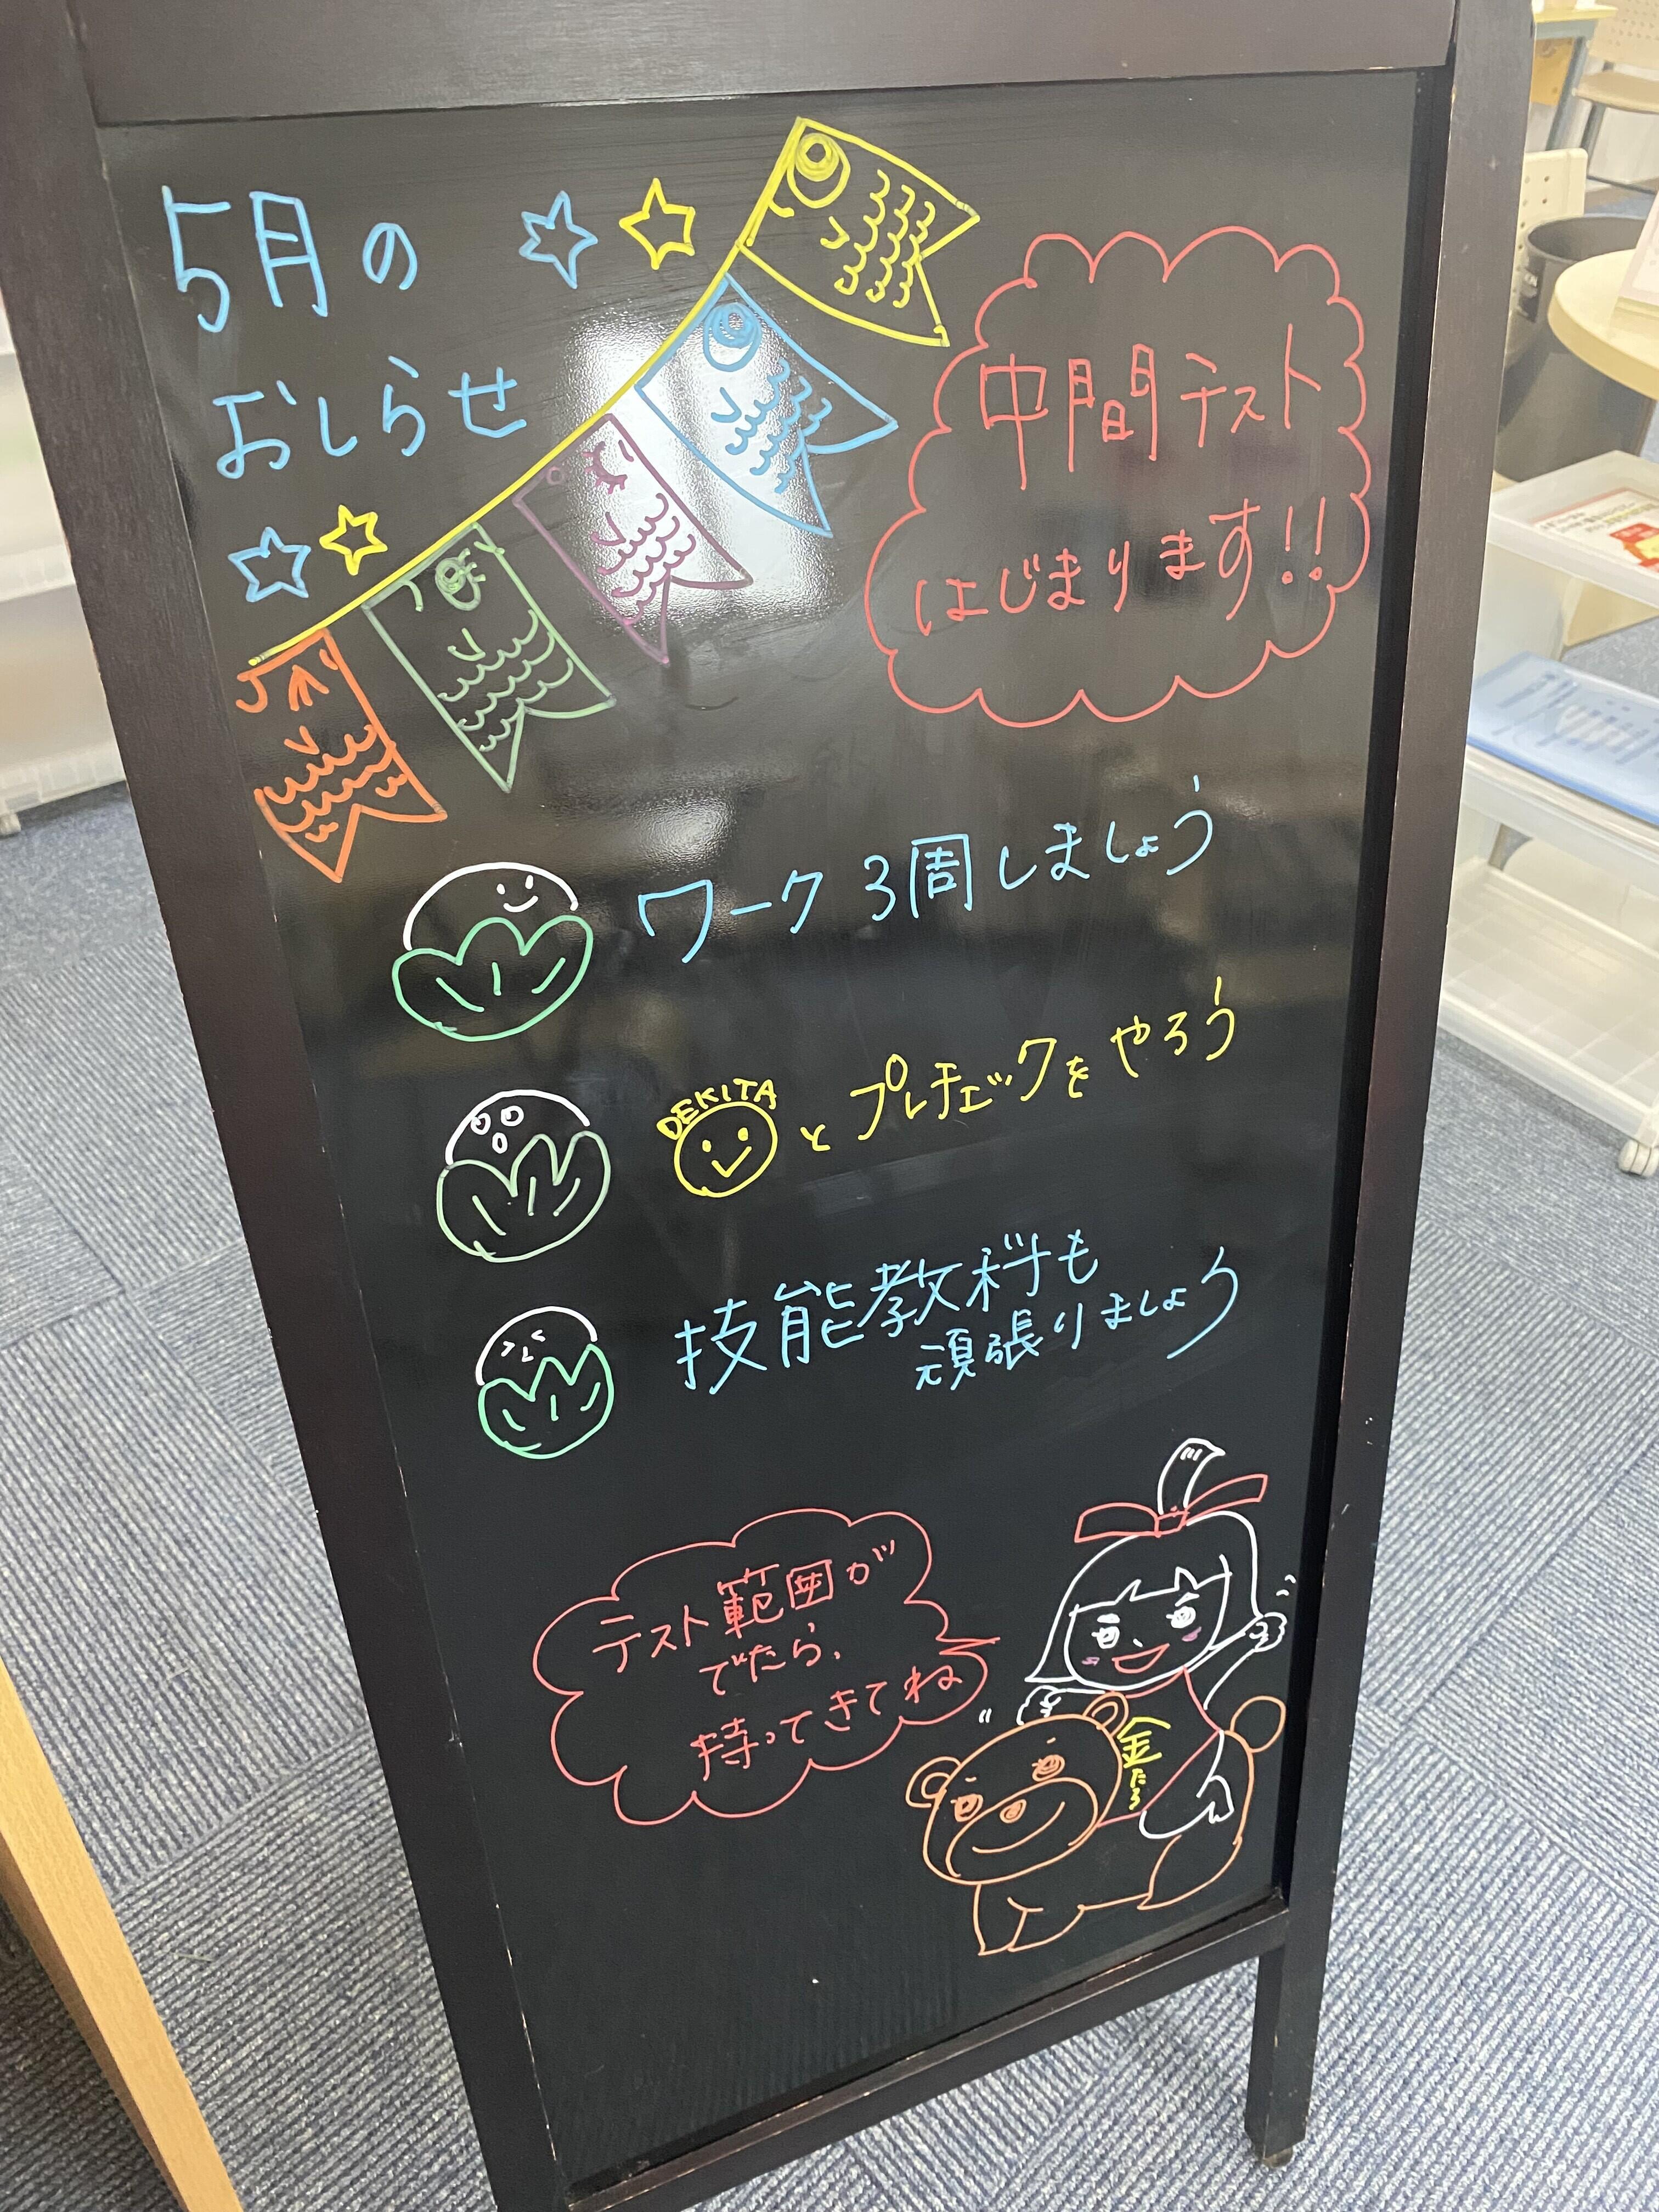 5月の
おしらせ
中間テスト
はじまります!!
ワーク3周しましょう
DEKITA
とプレチェックをやろう
技能教科も
頑張りましょう
テスト範囲が
でたら、
持ってきてね
金たろ